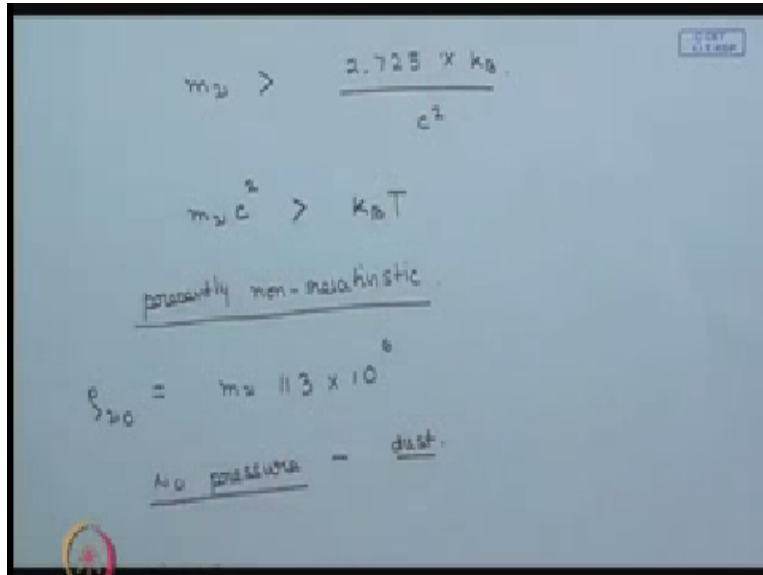 m_ν > 2.725 × k_B / c²
m_ν c² > k_B T
presently non-relativistic.
ρ_ν0 = m_ν 113 × 10⁶
No pressure – dust.